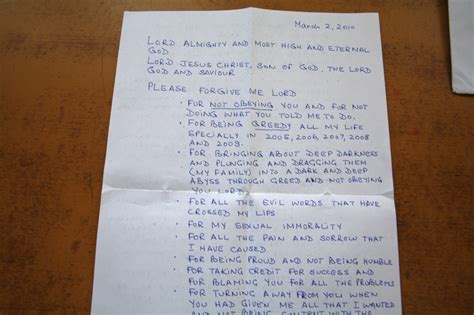 March 2, 2010
LORD ALMIGHTY AND MOST HIGH AND ETERNAL
GOD
LORD JESUS CHRIST, SON OF GOD, THE LORD
GOD AND SAVIOUR
PLEASE FORGIVE ME LORD
• FOR NOT OBEYING YOU AND FOR NOT
DOING WHAT YOU TOLD ME TO DO.
• FOR BEING GREEDY ALL MY LIFE
ESPECIALLY IN 2005, 2006, 2007, 2008
AND 2009.
• FOR BRINGING ABOUT DEEP DARKNESS
AND PLUNGING AND DRAGGING THEM
(MY FAMILY) INTO A DARK AND DEEP
ABYSS THROUGH GREED AND NOT OBEYING
YOU LORD
• FOR ALL THE EVIL WORDS THAT HAVE
CROSSED MY LIPS
• FOR MY SEXUAL IMMORALITY
• FOR ALL THE PAIN AND SORROW THAT
I HAVE CAUSED
• FOR BEING PROUD AND NOT BEING HUMBLE
• FOR TAKING CREDIT FOR SUCCESS AND
FOR BLAMING YOU FOR ALL THE PROBLEMS
• FOR TURNING AWAY FROM YOU WHEN
YOU HAD GIVEN ME ALL THAT I WANTED
AND NOT BEING CONTENT WITH THE